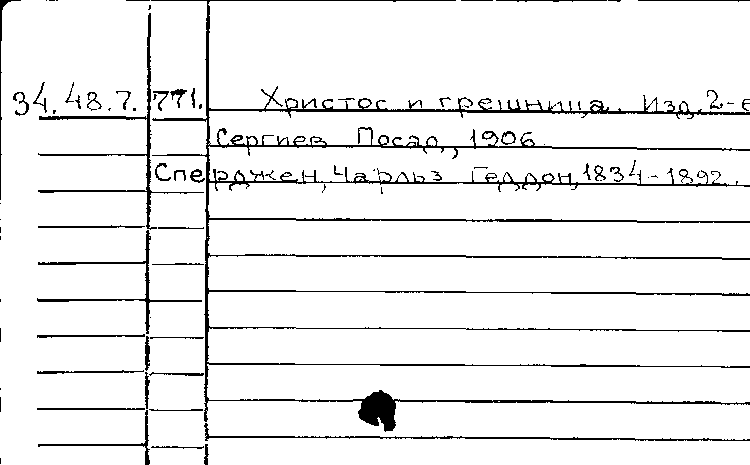 34.48.7. 771. Христос и грешница. Изд. 2-е
Сергиев Посад, 1906
Сперджен, Чарльз Геддон, 1834-1892.